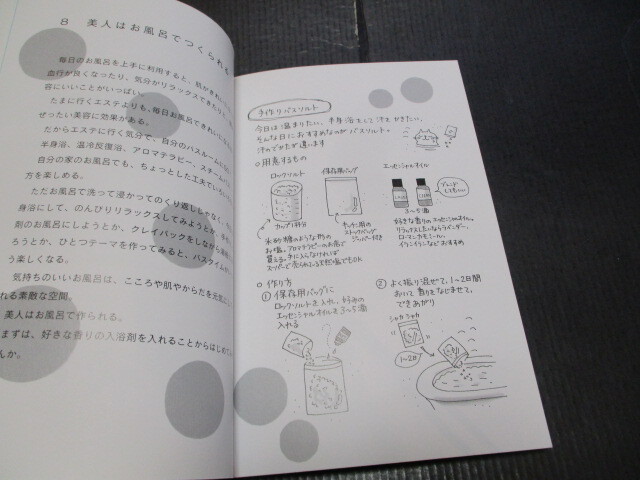 8 美人はお風呂でつくられる
毎日のお風呂を上手に利用すると、肌がきれい
血行が良くなったり、気分がリラックスできたり、
容にいいことがいっぱい。
たまに行くエステよりも、毎日お風呂できれいに
ぜったい美容に効果がある。
だからエステに行く気分で、自分のバスルームに
半身浴、温冷反復浴、アロマテラピー、スチーム
自分の家のお風呂でも、ちょっとした工夫で
方を楽しめる。
ただお風呂で洗って浸かってのくり返しじゃなく、
身浴にして、のんびりリラックスしてみようとか、
剤のお風呂にしようとか、クレイパックをしながら
ろうとか、ひとつテーマを作ってみると、バスタイム
う楽しくなる。
気持ちのいいお風呂は、こころや肌やからだを元気に
れる素敵な空間。
美人はお風呂で作られる。
まずは、好きな香りの入浴剤を入れることからはじめて
んか。
手作りバスソルト
今日は温まりたい、半身浴をして汗をかきたい。
そんな日におすすめなのがバスソルト。
汗のでかたが違います
○用意するもの
ロックソルト
保存用バッグ
エッセンシャルオイル
カップ1杯分
キッチン用の
ストックバッグ
ジッパー付き
3〜5滴
ブレンド
してもいい
米粒程のような形の
お塩。アロマテラピーのお店で
買える。手に入らなければ
スーパーで売られてる天然塩でもOK
好きな香りのエッセンシャルオイル。
リラックスしたいならラベンダー、
ローマンカモミール、
イランイランなどおすすめ
○作り方
① 保存用バッグに
ロックソルトを入れ、好みの
エッセンシャルオイルを3〜5滴
入れる
② よく振り混ぜて、1〜2日間
おいて香りをなじませて、
できあがり
シャカ シャカ
1〜2日